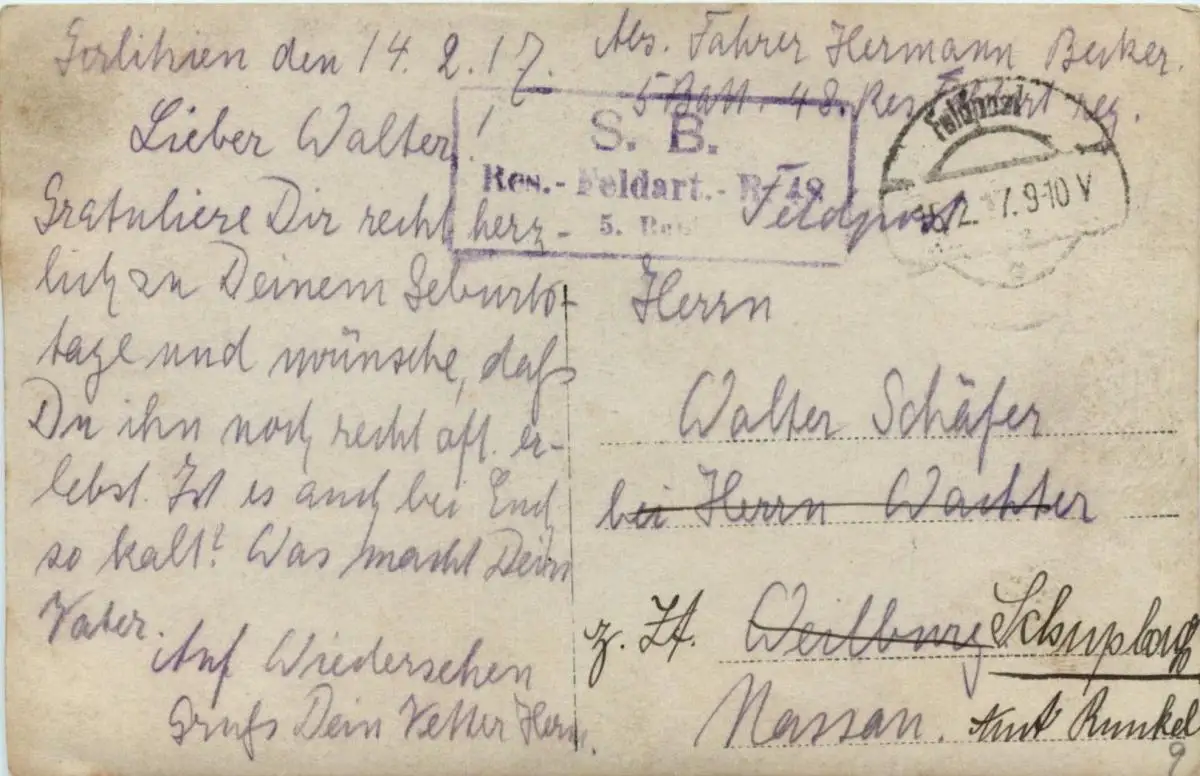 Gorlitzien den 14. 2. 17.
Lieber Walter
Gratuliere Dir recht herz-
lich zu Deinem Geburts-
tage und wünsche, daß
Du ihn noch recht oft er-
lebst. Ist es auch bei Euch
so kalt? Was macht Dein
Vater.
Auf Wiedersehen
Gruß Dein Vetter Herm.
Abs. Fahrer Hermann Becker.
5 Batt. 48. Res. Feldart reg.
S. B.
Res.-Feldart.-R. 48
5. Batt
Feldpost
Feldpost
2. 17. 9-10 V
Herrn
Walter Schäfer
bei Herrn Wachter
z. Zt. Weilburg Schupbach
Nassau. Amt Runkel
9